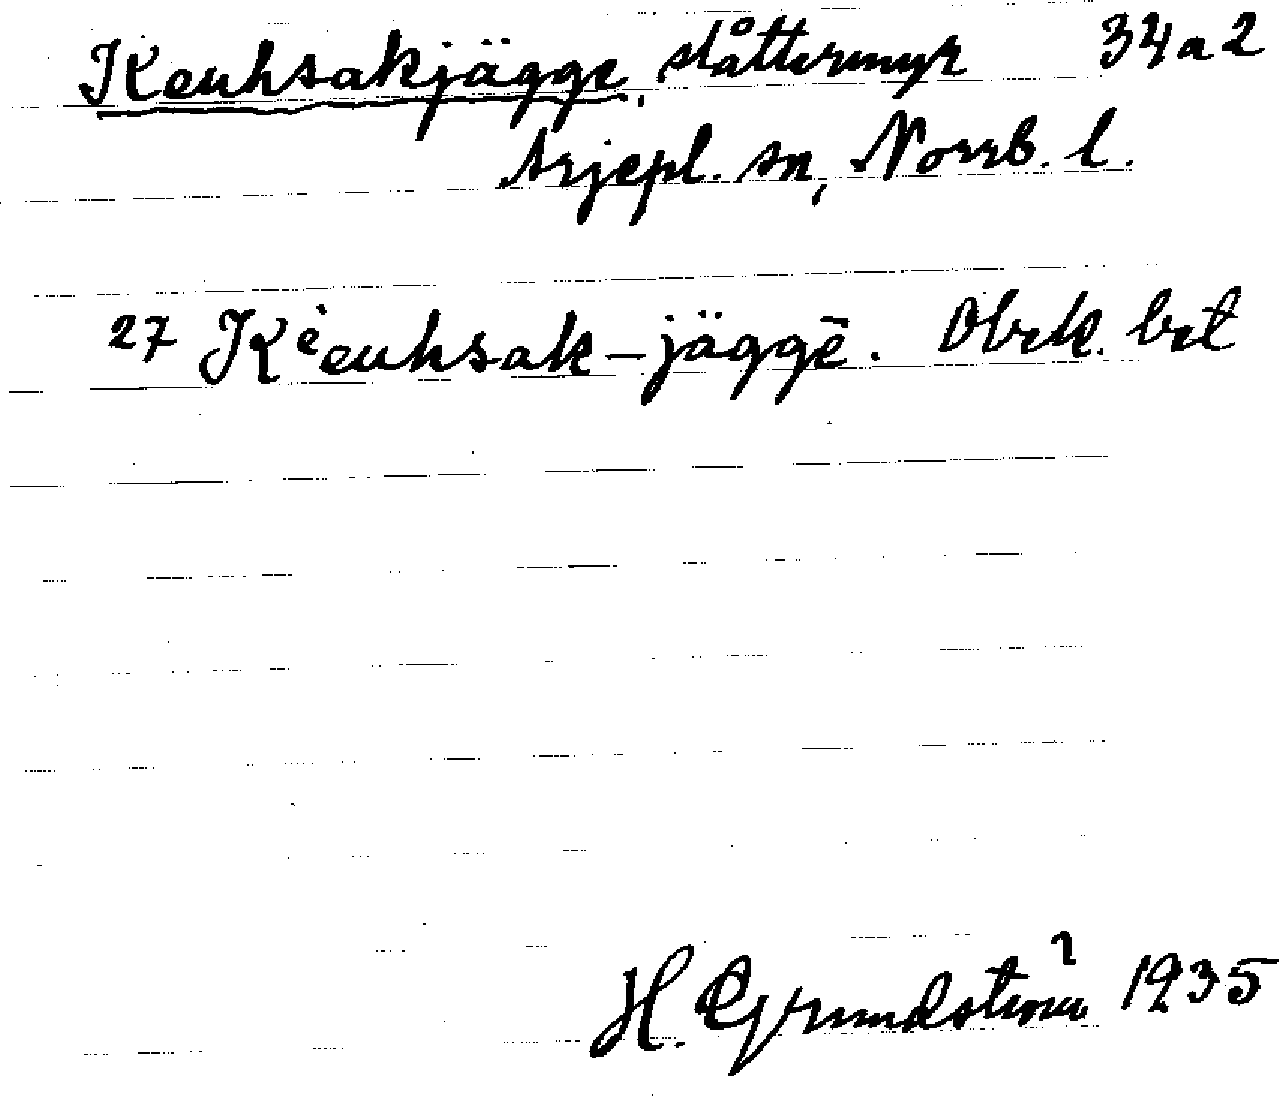 Keuhsakjägge, slåttermyr 34a2
Arjepl. sn, Norrb. l.
27 Kėeuhsak-jäggē. Obek. bet
H. Grundström 1935